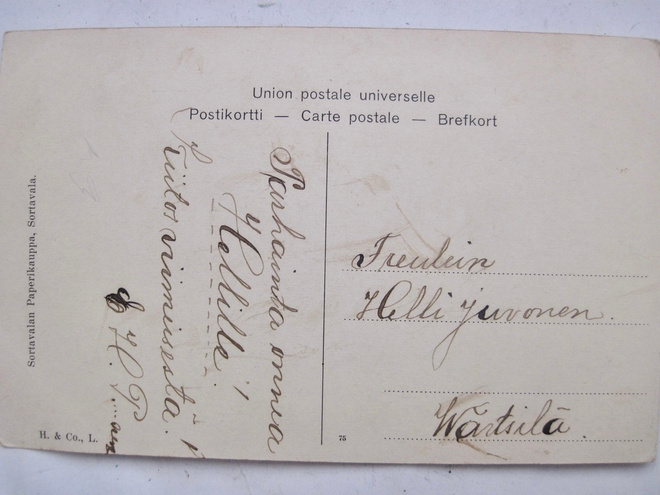 Union postale universelle
Postikortti — Carte postale — Brefkort
Parhainta onnea
Hellille!
Kiitos viimisestä!
H. P
Freulein
Helli Juvonen.
Wärtsilä.
Sortavalan Paperikauppa, Sortavala.
H. & Co., L.
75